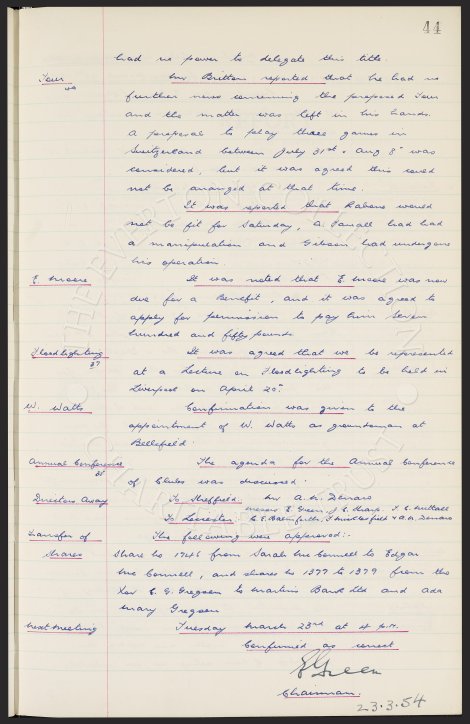 44
had no power to delegate this title.
Tour Mr Britton reported that he had no
further news concerning the proposed Tour
and the matter was left in his hands.
A proposal to play three games in
Switzerland between July 31st & Aug 8th was
considered, but it was agreed this could
not be arranged at that time.
It was reported that Rabone would
not be fit for Saturday, A. Farrall had had
a manipulation and Gibson, had undergone
his operation.
E. Moore It was noted that E. Moore was now
due for a Benefit, and it was agreed to
apply for permission to pay him seven
hundred and fifty pounds
Floodlighting It was agreed that we be represented
37 at a Lecture on Floodlighting to be held in
Liverpool on April 20th
W. Watts Confirmation was given to the
appointment of W. Watts as groundsman at
Bellefield.
Annual Conference The agenda for the Annual Conference
38 of Clubs was discussed.
Directors Away To Sheffield Mr A. H. Denaro
Messrs E. Green J. C. Sharp. T. C. Nuttall
To Leicester C. E. Balmforth, F. Micklesfield & A. H. Denaro
Transfer of The following were approved:-
Shares Share No 1746 from Sarah McConnell to Edgar
McConnell, and shares No 1377 to 1379 from the
Exor E. G. Gregson to Martins Bank Ltd and Ada
Mary Gregson
Next Meeting Tuesday March 23rd at 4 p.m.
Confirmed as correct
E Green
Chairman.
23.3.54
THE EVERTON COLLECTION
CHARITABLE TRUST